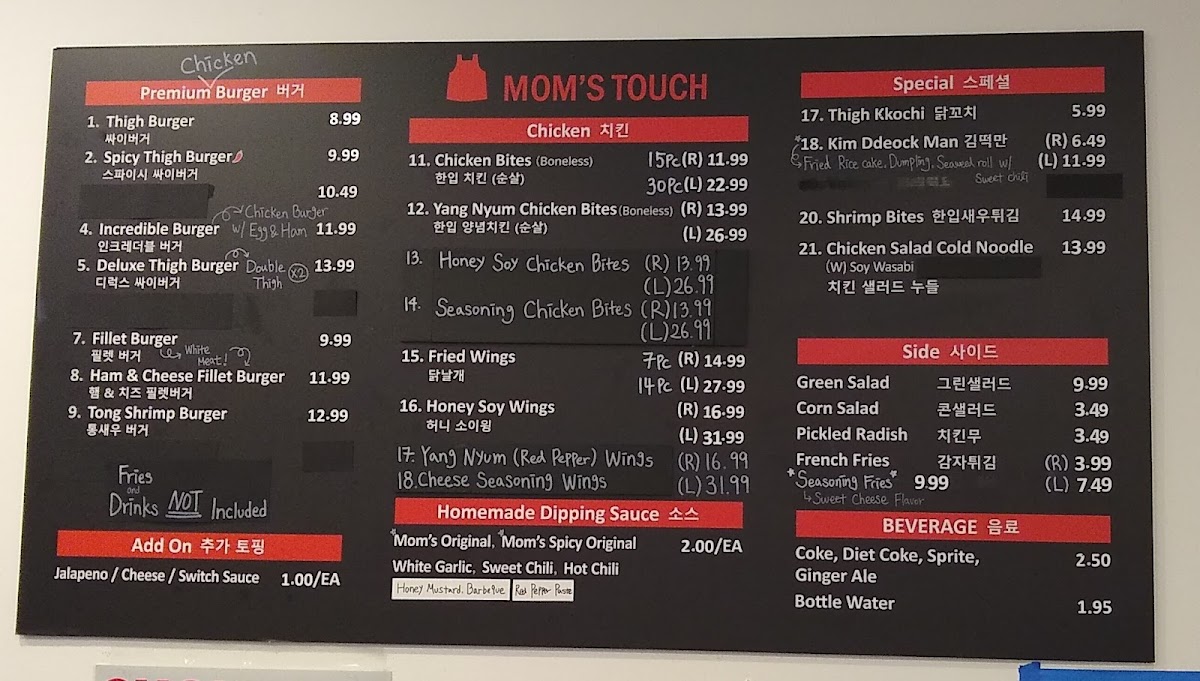 MOM'S TOUCH
Chicken
Premium Burger 버거
1. Thigh Burger 8.99
싸이버거
2. Spicy Thigh Burger 9.99
스파이시 싸이버거
10.49
4. Incredible Burger 11.99
인크레더블 버거
Chicken Burger
w/ Egg & Ham
5. Deluxe Thigh Burger 13.99
디럭스 싸이버거
Double
Thigh X2
7. Fillet Burger 9.99
필렛 버거
White
Meat!
8. Ham & Cheese Fillet Burger 11.99
햄 & 치즈 필렛버거
9. Tong Shrimp Burger 12.99
통새우 버거
Fries
and
Drinks NOT Included
Add On 추가 토핑
Jalapeno / Cheese / Switch Sauce 1.00/EA
Chicken 치킨
11. Chicken Bites (Boneless) 15pc (R) 11.99
한입 치킨 (순살) 30pc (L) 22.99
12. Yang Nyum Chicken Bites (Boneless) (R) 13.99
한입 양념치킨 (순살) (L) 26.99
13. Honey Soy Chicken Bites (R) 13.99
(L) 26.99
14. Seasoning Chicken Bites (R) 13.99
(L) 26.99
15. Fried Wings 7pc (R) 14.99
닭날개 14pc (L) 27.99
16. Honey Soy Wings (R) 16.99
허니 소이윙 (L) 31.99
17. Yang Nyum (Red Pepper) Wings (R) 16.99
18. Cheese Seasoning Wings (L) 31.99
Homemade Dipping Sauce 소스
*Mom's Original, *Mom's Spicy Original 2.00/EA
White Garlic, Sweet Chili, Hot Chili
Honey Mustard. Barbeque Red Pepper Paste
Special 스페셜
17. Thigh Kkochi 닭꼬치 5.99
*18. Kim Ddeock Man 김떡만 (R) 6.49
(L) 11.99
Fried Rice cake, Dumpling, Seaweed roll w/
Sweet chili
20. Shrimp Bites 한입새우튀김 14.99
21. Chicken Salad Cold Noodle 13.99
(W) Soy Wasabi
치킨 샐러드 누들
Side 사이드
Green Salad 그린샐러드 9.99
Corn Salad 콘샐러드 3.49
Pickled Radish 치킨무 3.49
French Fries 감자튀김 (R) 3.99
*Seasoning Fries* 9.99 (L) 7.49
Sweet Cheese Flavor
BEVERAGE 음료
Coke, Diet Coke, Sprite, 2.50
Ginger Ale
Bottle Water 1.95